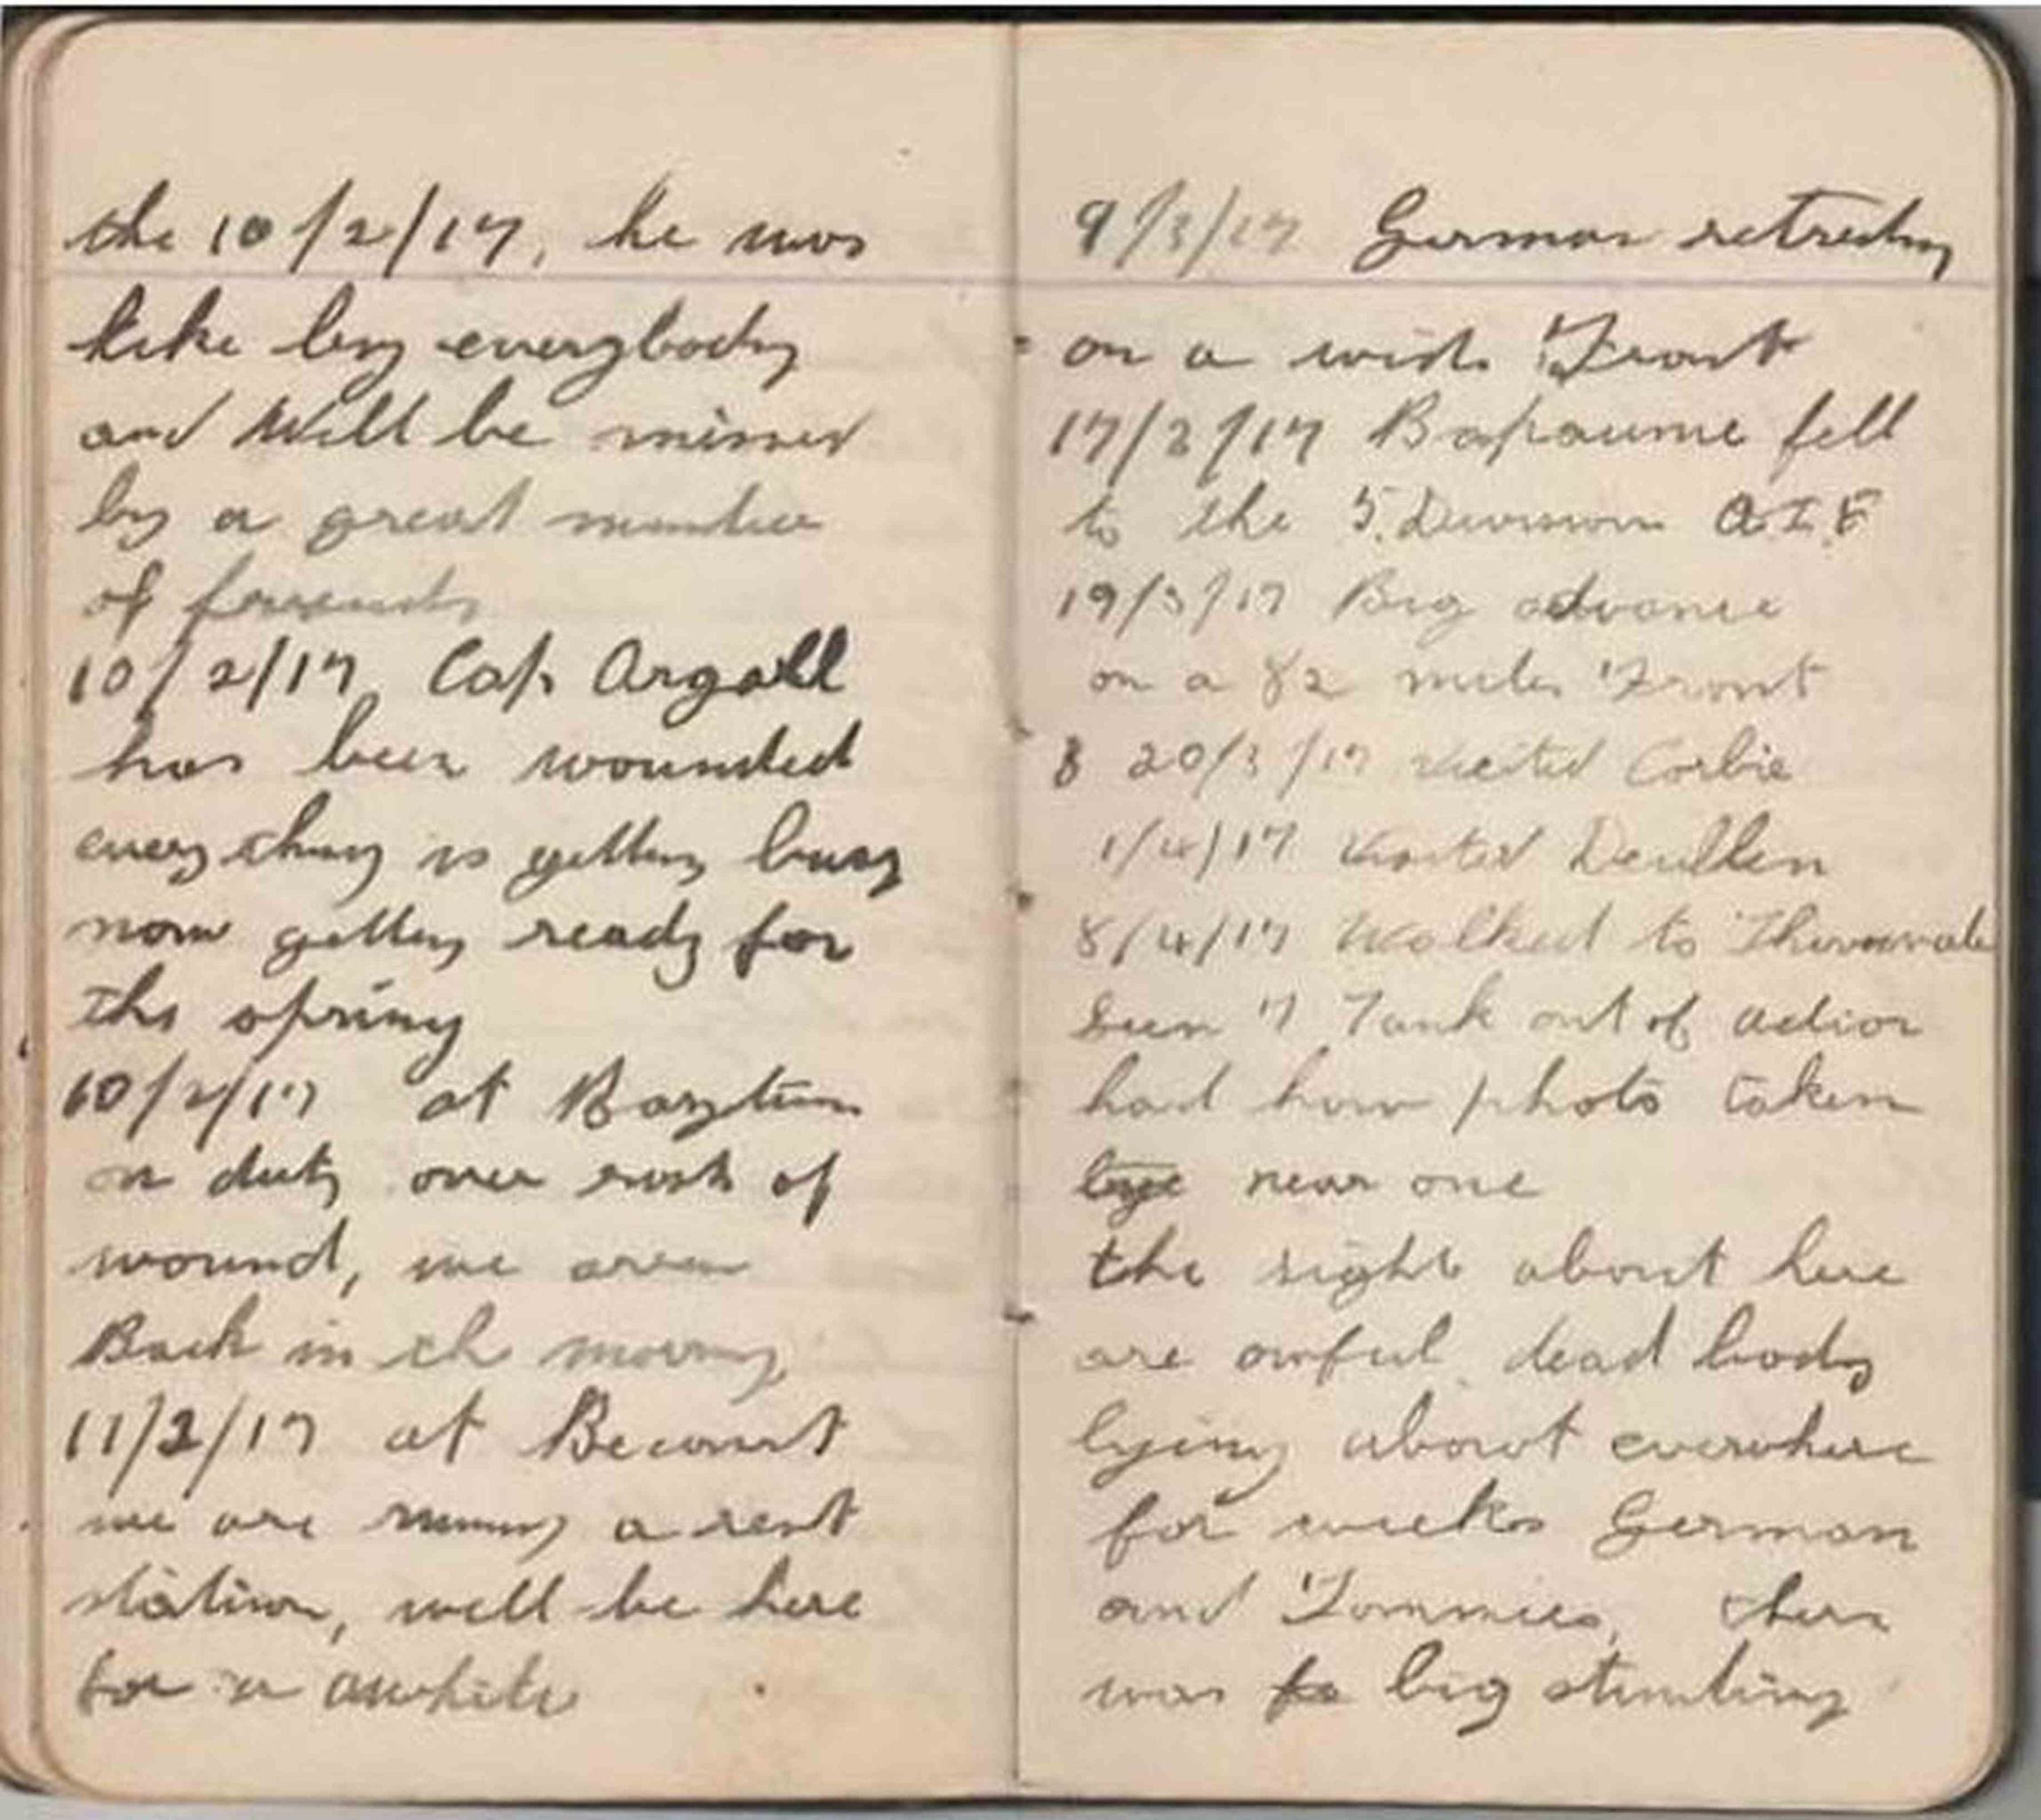 the 10/2/17, he was
like by everybody
and Will be missed
by a great number
of friends
10/2/17 Cap Argall
has been wounded
every thing is getting busy
now getting ready for
the spring
10/2/17 at Bazytin
on duty over rush of
wound, we are
Back in th morning
11/2/17 at Becourt
we are running a rest
station, will be here
for a awhile
9/3/17 German retreating
on a wide Front
17/3/17 Bapaume fell
to the 5. Division A.I.F
19/3/17 Big advance
on a 82 miles Front
20/3/17 visited Corbie
1/4/17 visited Deullen
8/4/17 Walked to
Seen 7 Tank out of action
had photo taken
near one
the sight about here
are awful dead body
lying about everwhere
for weeks German
and Tommies, ther
was big stunting